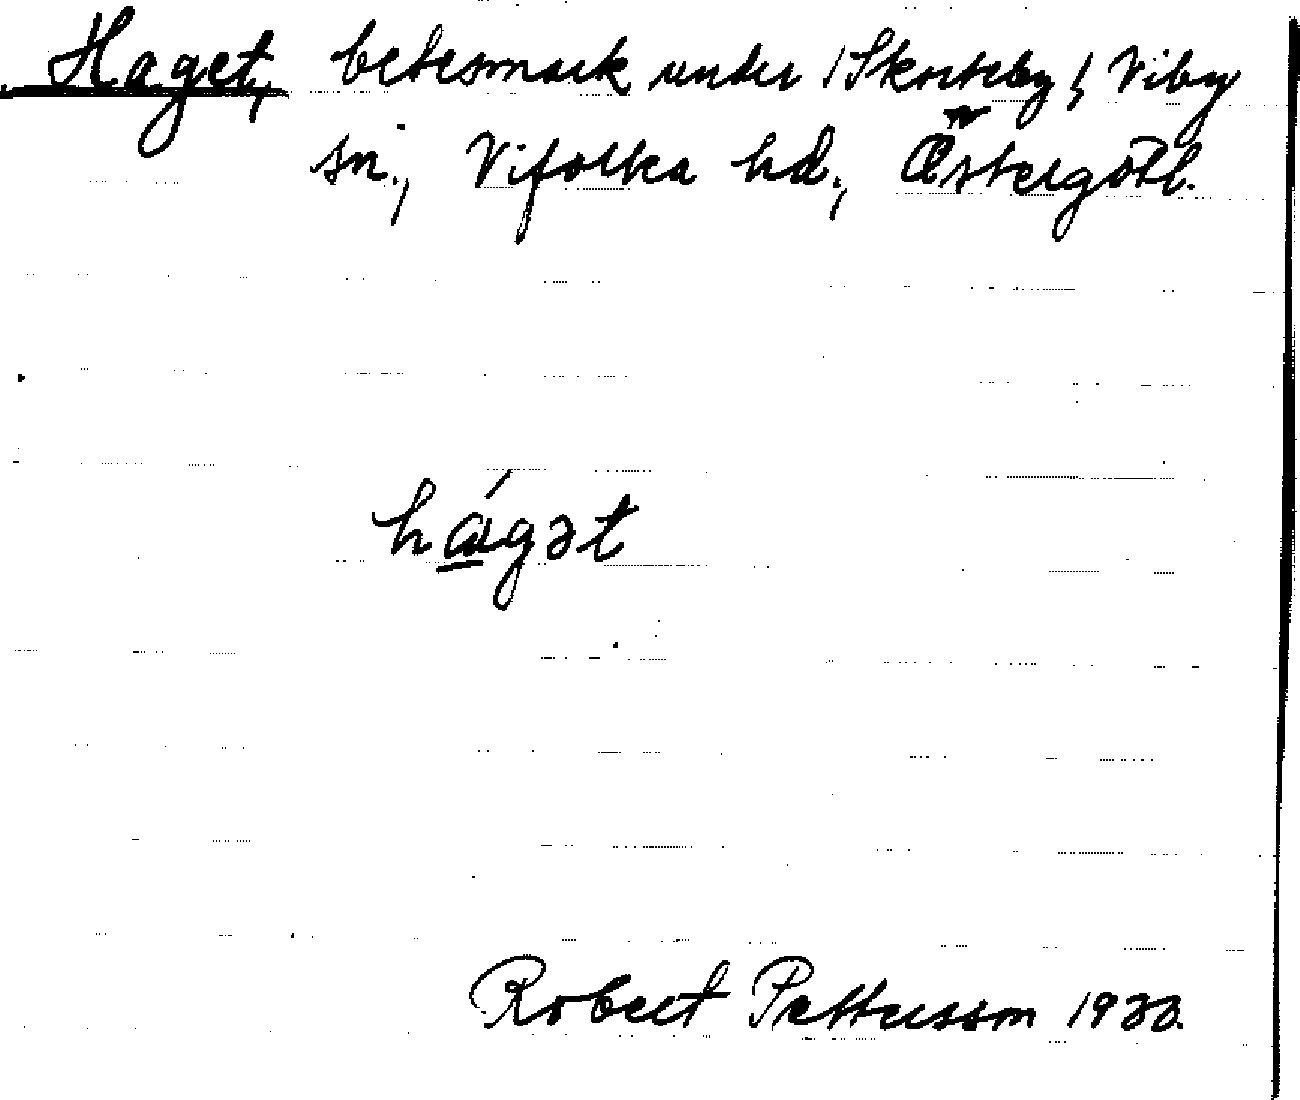 Haget, betesmark under /Skorteby/, Viby
sn., Vifolka hd., Östergötl.
hágət
Robert Pettersson 1933.